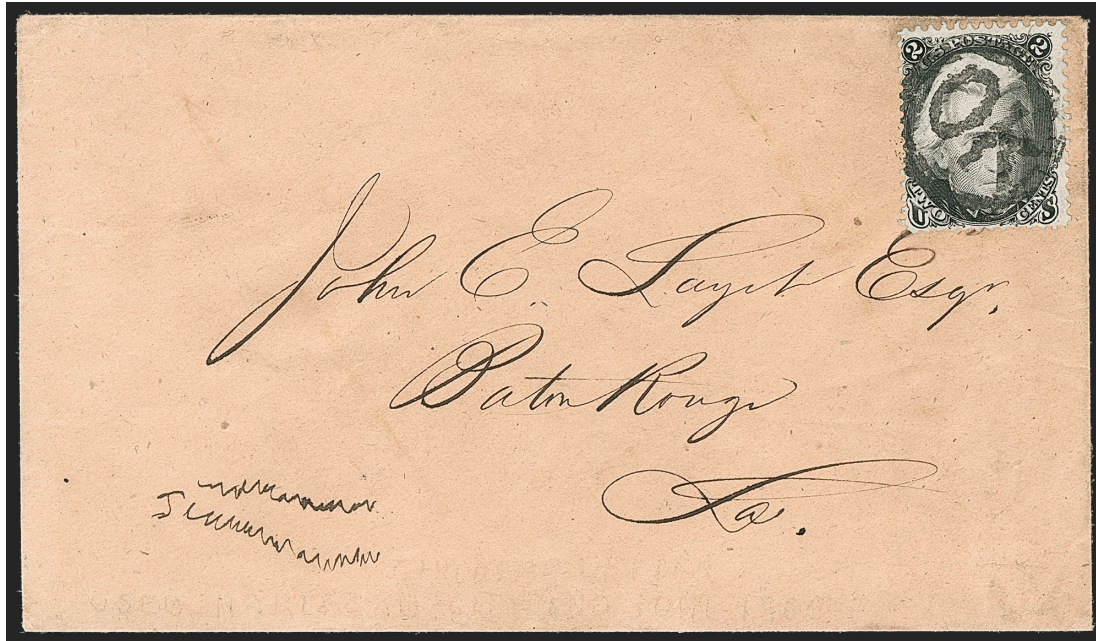 2 U.S. POSTAGE 2
TWO CENTS
U S
John E. Layet Esqr,
Baton Rouge
La.